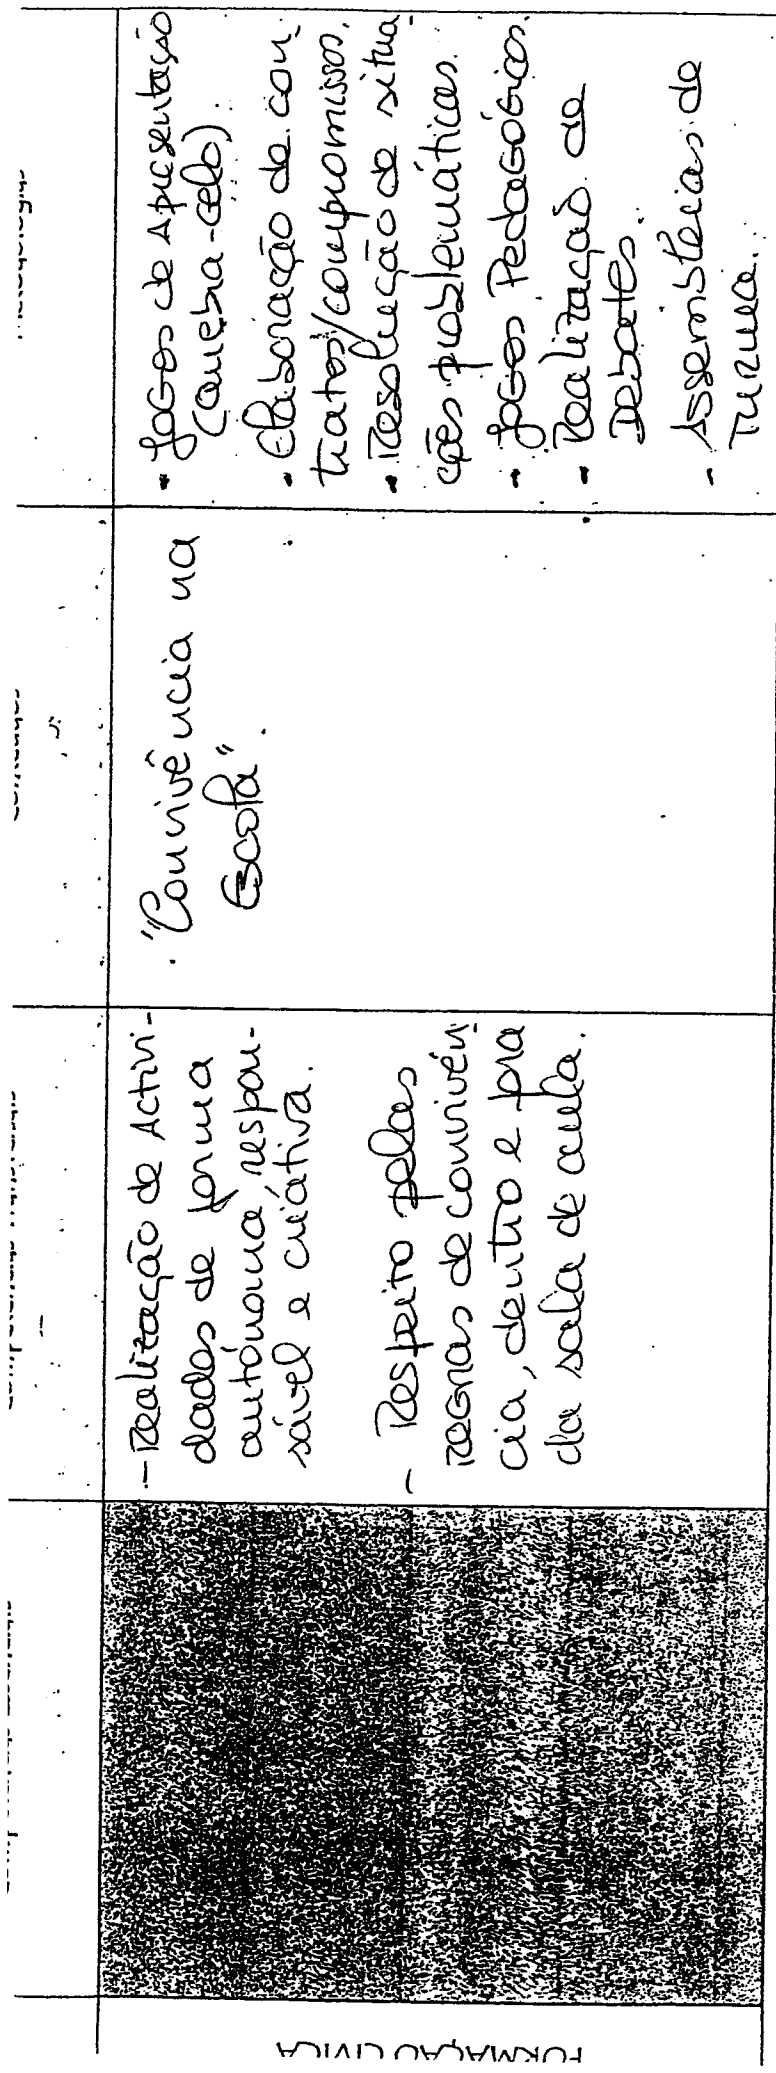 FORMAÇÃO CÍVICA
- Realização de Activi-
dades de forma
autónoma, respon-
sável e criativa.
- Respeito pelas
regras de convivên
cia, dentro e fora
da sala de aula.
. "Convivência na
Escola".
- Jogos de Apresentação
(quebra-gelo).
- Elaboração de con
tratos/compromissos.
- Resolução de situa
ções problemáticas.
- Jogos Pedagógicos.
- Realização de
Debates.
- Assembleias de
Turma.